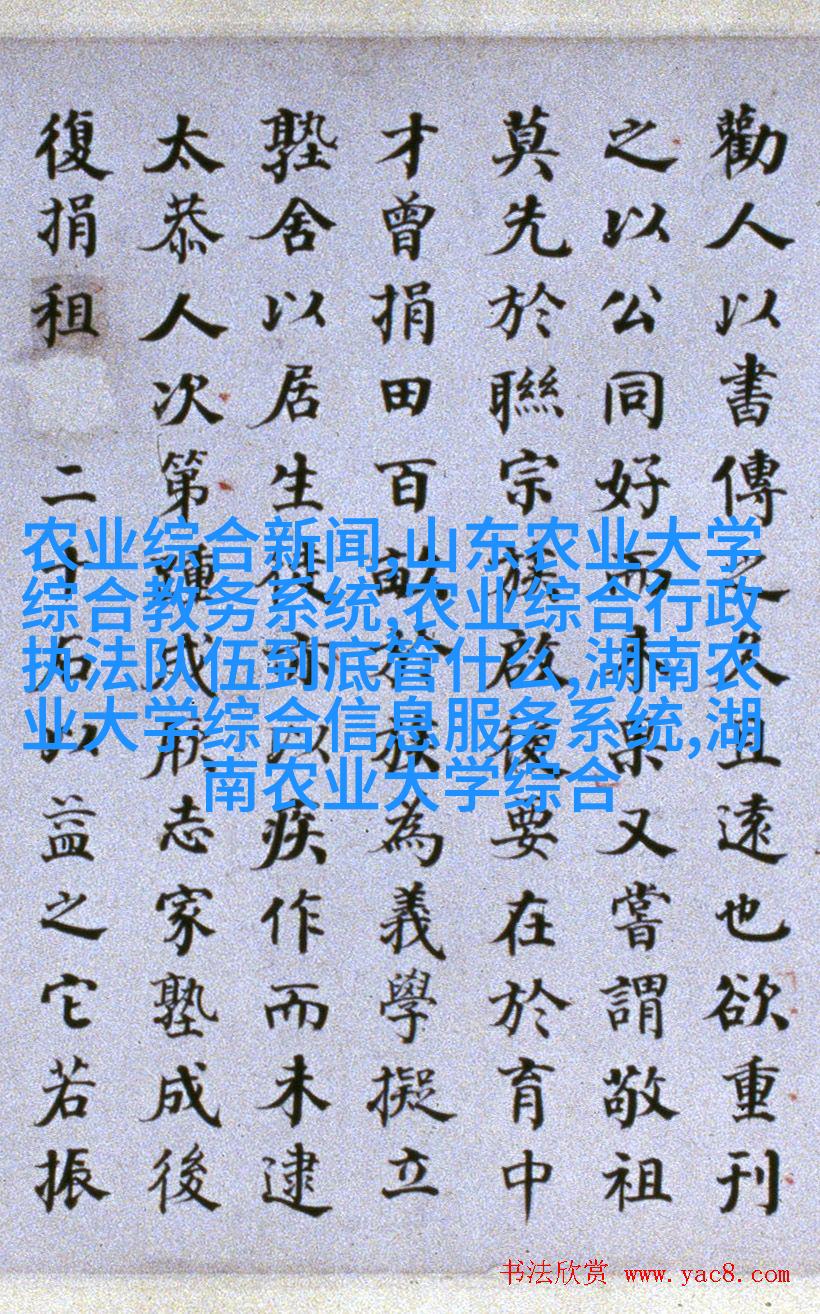 勸人以書傳之久且遠也欲重刊
之以公同好而未果又嘗謂敬祖
莫先於聯宗族啟後要在於育中
才曾捐田百畝於族為義學擬立
塾舍以居生徒亦以疾作而未逮
太恭人次第踵成節志家塾成後
復捐租二十石以益之它若振
农业综合新闻,山东农业大学
综合教务系统,农业综合行政
执法队伍到底管什么,湖南农
业大学综合信息服务系统,湖
南农业大学综合
书法欣赏 www.yac8.com